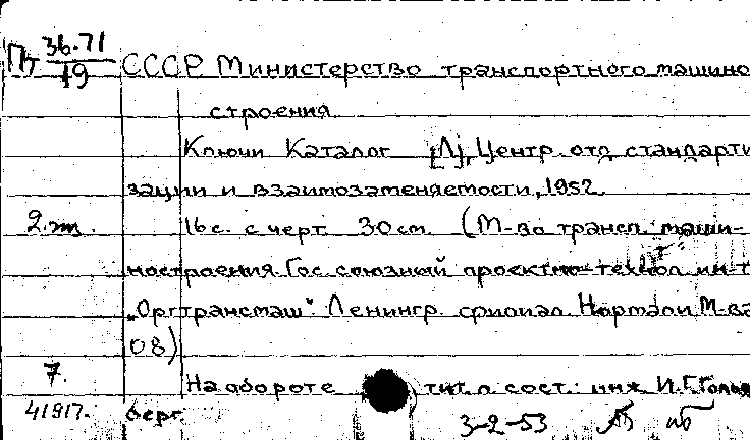 Пт 36.71/19 СССР Министерство транспортного машино
строения
Ключи Каталог [Л], Центр. отд. стандарти
зации и взаимозаменяемости, 1952.
2 эк. 16 с. с черт. 30 см. (М-во трансп. маши-
ностроения. Гос. союзный проектно-технол. ин-т
„Оргтрансмаш" Ленингр. филиал Нормали М-ва
08)
7. На обороте тит. л. сост.: инж. И.Г.
41917. берг 3-2-53